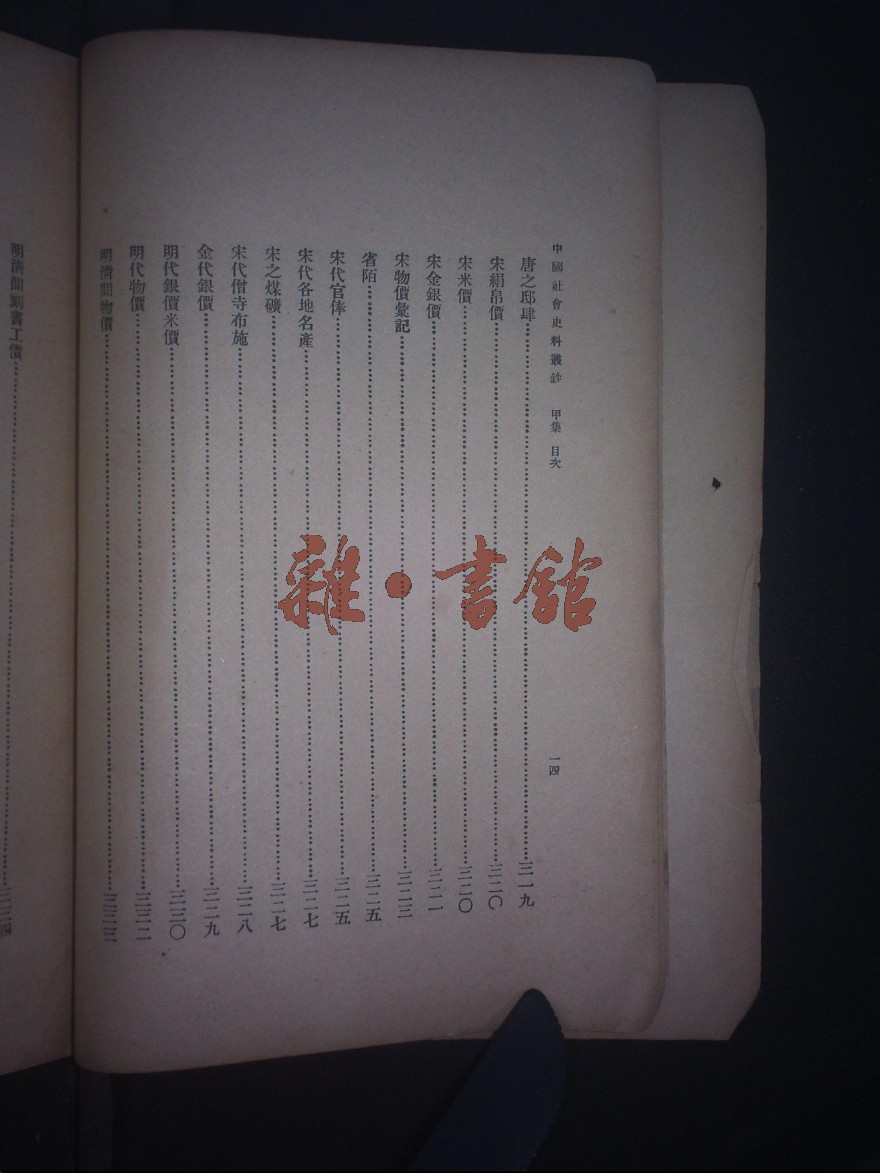 中國社會史料叢鈔 甲集 目次 一四
唐之邸肆……三一九
宋絹帛價……三二〇
宋米價……三二〇
宋金銀價……三二一
宋物價彙記……三二三
省陌……三二五
宋代官俸……三二五
宋代各地名產……三二七
宋之煤礦……三二七
宋代僧寺布施……三二八
金代銀價……三二九
明代銀價米價……三三〇
明代物價……三三二
明清間物價……三三三
明清間刻書工價……三三四
雜·書館